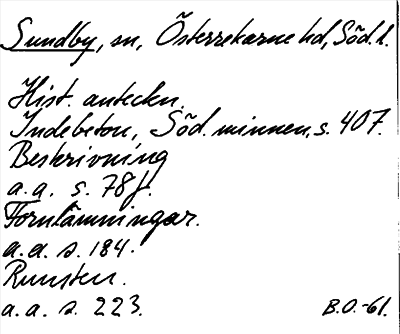 Sundby, sn, Österrekarne hd, Söd. l.
Hist. anteckn.
Indebetou, Söd. minnen, s. 407.
Beskrivning
a.a. s. 78f.
Fornlämningar.
a.a. s. 184.
Runsten.
a.a. s. 223.
B.O.-61.